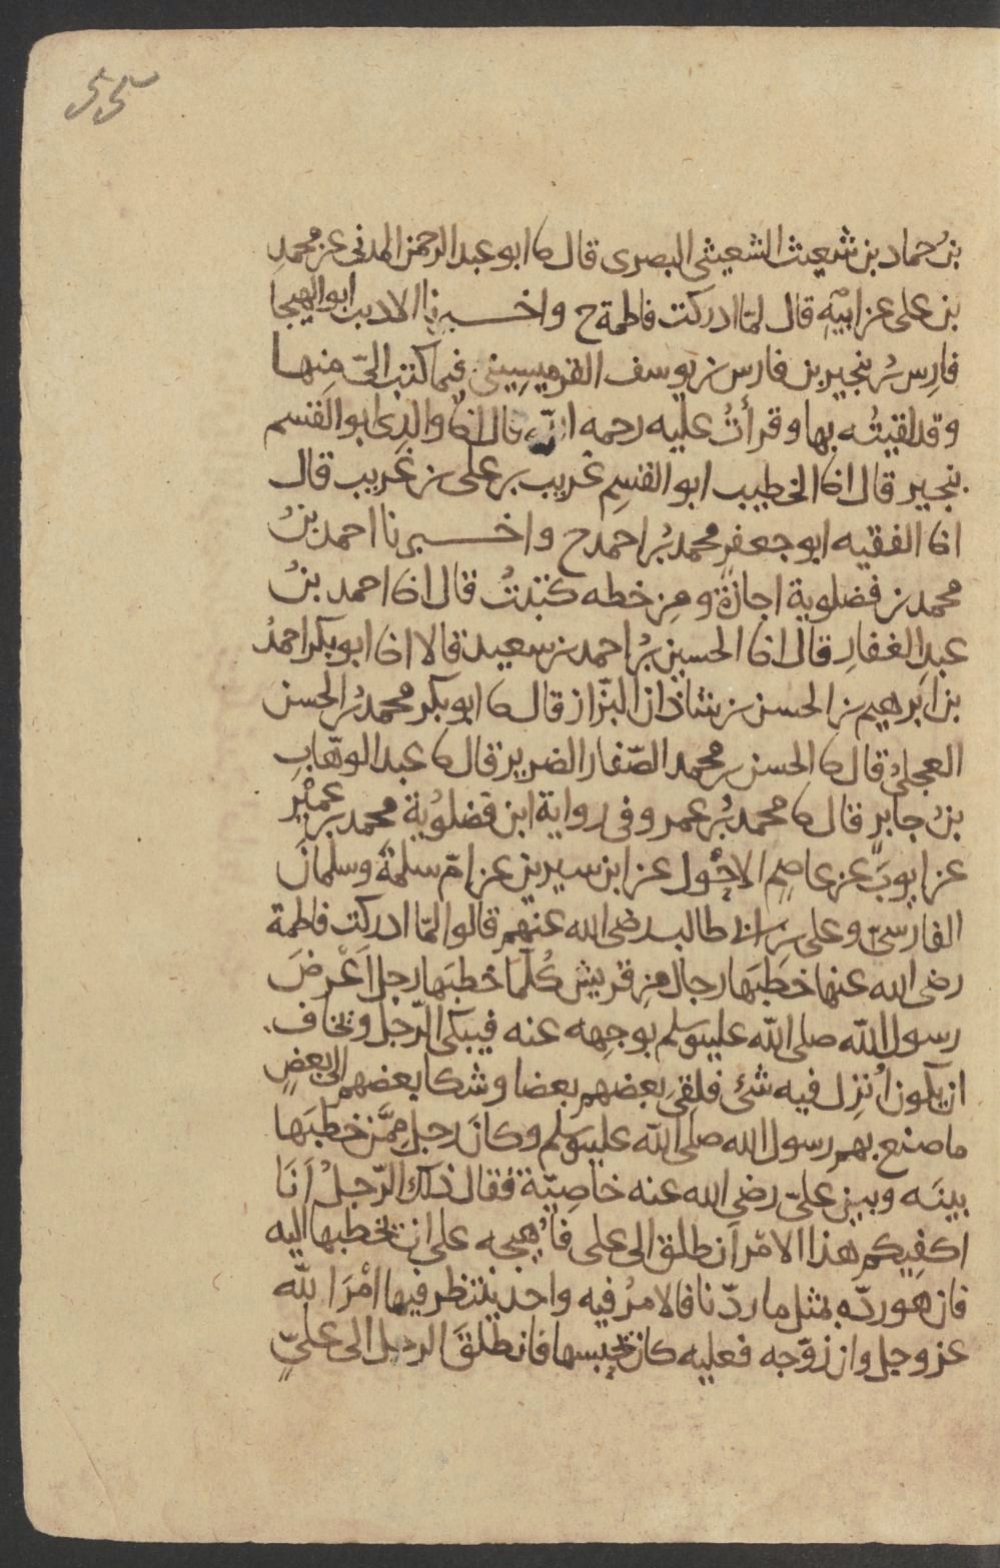 بنُ حماد بن شعيث الشعيثي البصرى قال نا ابو عبد الرحمن المدنى عن محمدِ
بن على عن ابيهِ قال لمّا ادركت فاطمة ح واخبرنا الاديب ابو الهيجا
فارِس بنُ بنجير بن فارس بن يوسف القرميسِينى فيما كتب الىّ مِنها
وقد لقيتُه بها وقرأتُ عليه رحمه الله قال انا والدِى ابو القسم
بنجير قال انا الخطيب ابو القسِم غريب بن على بن غريب قال
انا الفقيه ابو جعفرٍ محمد بنُ احمد ح واخبرنا احمد بنُ
محمد بن فضلوية اجازةً ومِن خطه كتبتُ قال انا احمد بنُ
عبدِ الغفارِ قال انا الحسين بنُ احمد بن سعيد قالا انا ابو بكر احمدُ
بن ابرهيم بن الحسن بن شاذان البزّاز قال نا ابو بكر محمد بنُ الحسن
العجلىُ قال نا الحسن بن محمد الصّفار الضرير قال نا عبد الوهّابِ
بنُ جابرٍ قال نا محمد بنُ عمر وفى رواية ابن فضلوُية محمد بن عميْر
عن ايوبَ عن عاصِم الاحْول عن ابن سيرين عن امّ سلمةَ وسلمانَ
الفارسىّ وعلى بنِ ابى طالب رضى الله عنهم قالوا لمّا ادركت فاطمة
رضى الله عنها خطَبَها رجال مِن قريش كُلّما خطبَها رجل اَعْرضَ
رسول الله صلى الله عليه وسلم بوجهِه عنه فيبكى الرّجل وتخاف
ان يكون اُنزِل فيه شئ فلقِى بعضهم بعضا وشكا بعضهم الى بعضٍ
ما صنع بهم رسول الله صلى الله عليه وسلم وكانَ رجل مِمَّن خطبَها
بينَه وبين علىّ رضى الله عنه خاصِيّة فقال ذلك الرّجلُ اَنَا
اكفِيكم هذا الامْر اَنطلق الى على فاُهيجه على ان يخطبها اليه
فان هو ردّه بمثل ما ردّنا فالامرُ فيه واحد ينتظر فيها امْرَ اللّه
عز وجل وان زوّجه فعليه كان يحبسها فانطلقَ الرجل الى علىّ